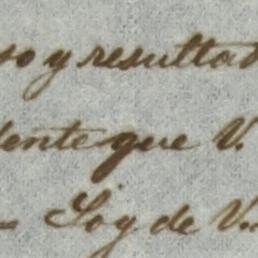 so y resultad
dente que V.
= Soy de V..